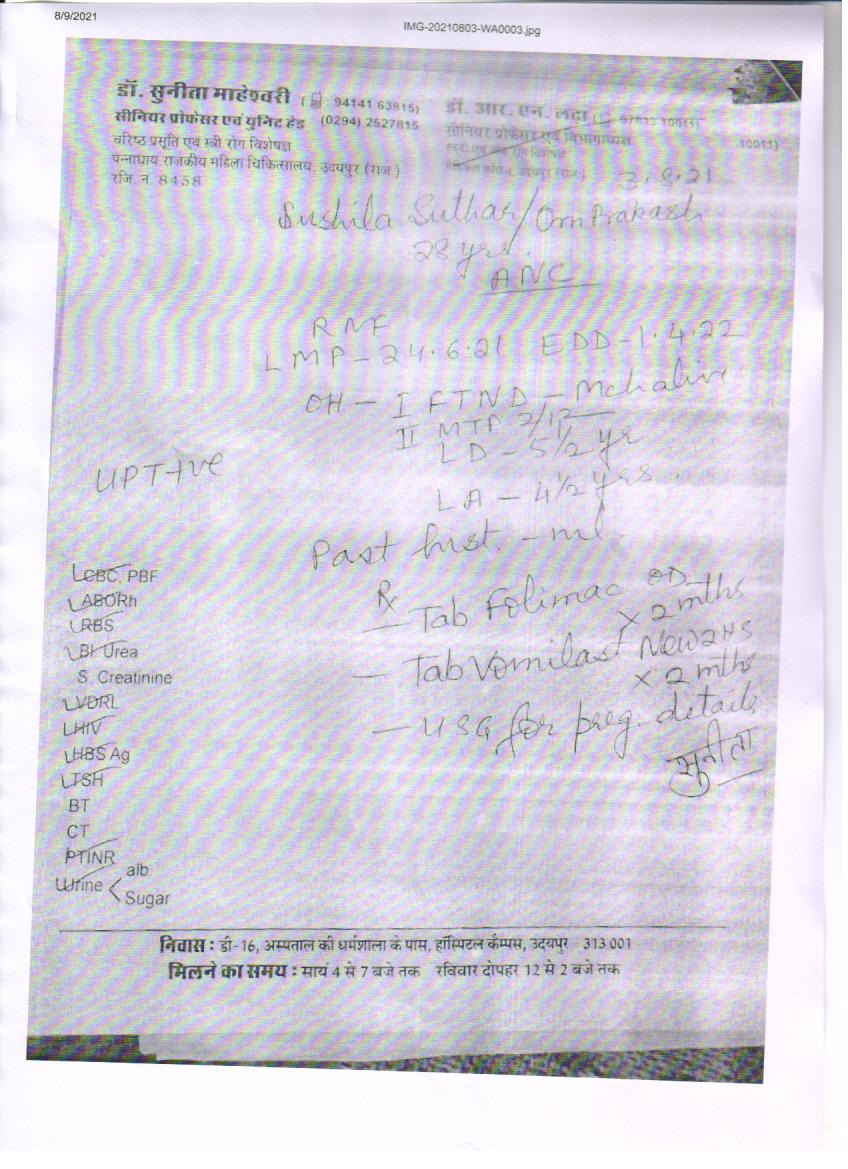 8/9/2021
IMG-20210803-WA0003.jpg
डॉ. सुनीता माहेश्वरी ( : 94141 63815)
सीनियर प्रोफेसर एवं युनिट हेड (0294) 2527815
वरिष्ठ प्रसूति एवं स्त्री रोग विशेषज्ञ
पन्नाधाय राजकीय महिला चिकित्सालय, उदयपुर (राज.)
रजि. नं. 8458
डॉ. आर. एन. लढ़ा
सीनियर प्रोफेसर एवं विभागाध्यक्ष
10011)
3.8.21
Sushila Suthar/Om Prakash
28 yrs.
ANC
RMF
LMP-24.6.21 EDD-1.4.22
OH - I FTND - Mchalive
II MTP 2/12
LD - 5 1/2 yr
LA - 4 1/2 yrs.
UPT+ve
Past hist. - nil.
CBC, PBF
ABORh
RBS
Bl. Urea
S. Creatinine
VDRL
HIV
HBS Ag
TSH
BT
CT
PTINR
Urine < alb.
Sugar
Rx
- Tab Folimac OD
x 2 mths
- Tab Vomilast New 2HS
x 2 mths
- USG for preg. details
सुनीता
निवास : डी-16, अस्पताल की धर्मशाला के पास, हॉस्पिटल कैम्पस, उदयपुर 313 001
मिलने का समय : सायं 4 से 7 बजे तक रविवार दोपहर 12 से 2 बजे तक